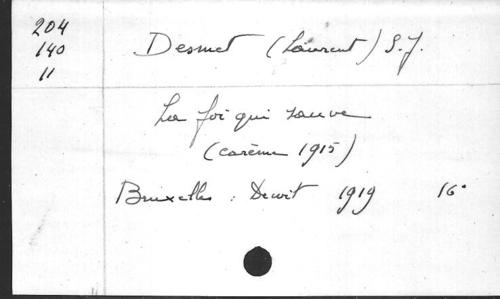 204
140
11
Desmet (Laurent) S.J.
La foi qui sauve
(carême 1915)
Bruxelles : Dewit 1919 16°